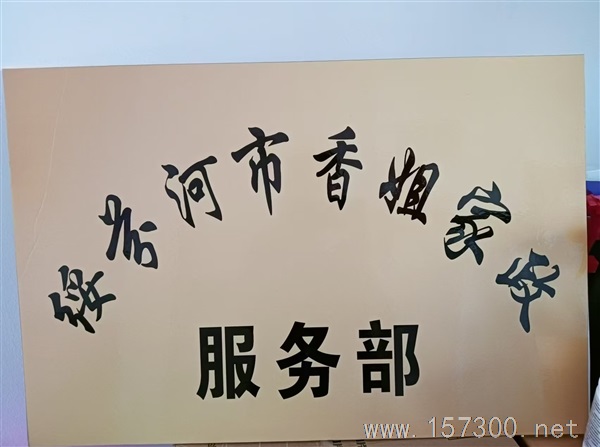 绥芬河市香姐家政
服务部
www.157300.net